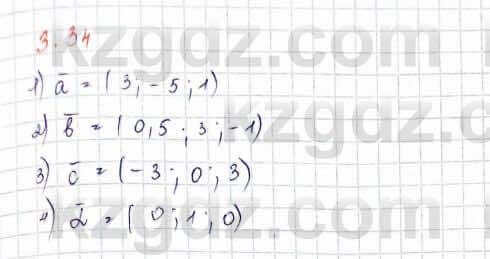 3.34
1) a̅ = (3; -5; 1)
2) b̅ = (0,5; 3; -1)
3) c̅ = (-3; 0; 3)
4) d̅ = (0; 1; 0)
kzgdz.com
kzgdz.com
kzgdz.com